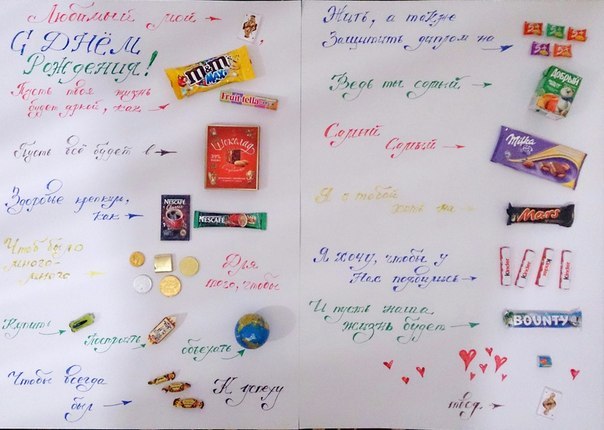 Любимый мой
С ДНЁМ
Рождения!
m&m's
MAXI
Пусть твоя жизнь
будет яркой, как
Fruittella
Пусть всё будет в
Шоколад
Здоровье крепким,
как
NESCAFÉ
NESCAFÉ
Чтоб было
много-
много
Для
того, чтобы
Купить
Построить
объехать
Чтобы всегда
был
К успеху
Жить, а также
Защитить диплом на
Ведь ты самый
Добрый
Самый
Самый
Milka
Я с тобой
хоть на
Mars
Я хочу, чтобы у
Нас появились
Kinder
Kinder
Kinder
Kinder
И пусть наша
жизнь будет
BOUNTY
твоя